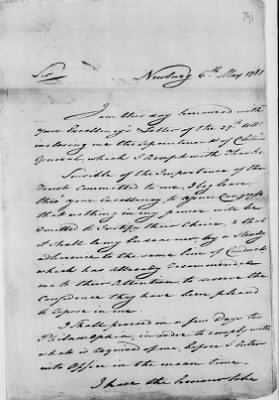 Sir
Newburg 6th May 1781
I am this day honoured with
your Excellency's Letter of the 29th Ult.
inclosing me the Appointment of Clothier
General, which I accept with Thanks.
Sensible of the Importance of the
Trust Committed to me, I beg leave,
thro' your Excellency, to assure Congress
that nothing in my power will be
Omitted to Justify their Choice, & that
I shall by a Steady
adherence to the same line of Conduct
which has already recommended
me to their Attention, to deserve the
Confidence they have been pleased
to repose in me.
I shall proceed in a few Days to
Philadelphia, in order to comply with
which is required of me, before I enter
into Office in the mean time.
I have the honour to be